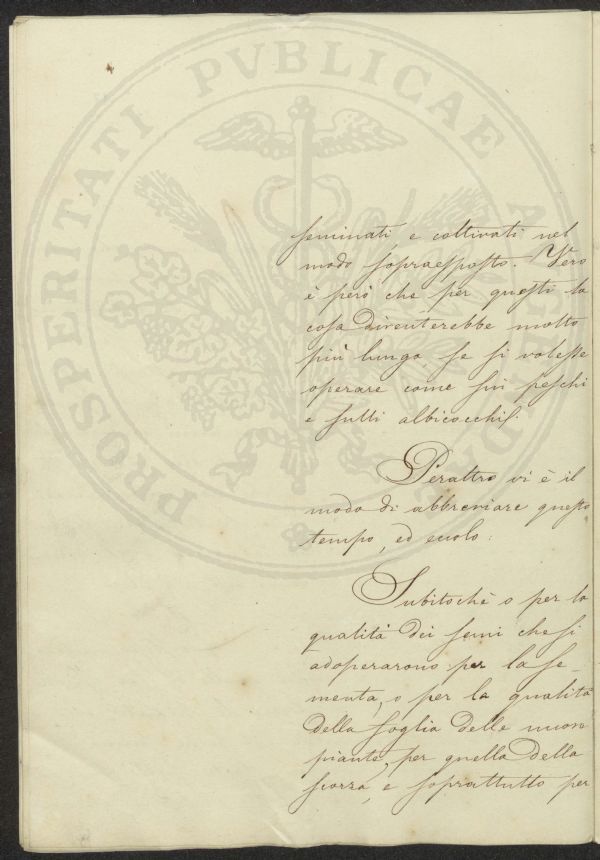 PROSPERITATI PVBLICAE AUGENDAE
seminati, e coltivati nel
modo sopraesposto. Vero
è però che per questi la
cosa diventerebbe molto
più lunga, se si volesse
operare come sui peschi
e sulli albicocchi.
Peraltro vi è il
modo di abbreviare questo
tempo, ed eccolo:
Subitochè o per la
qualità dei semi che si
adoperarono per la se-
menta, o per la qualità
della foglia delle nuove
piante, per quella della
scorza, e soprattutto per